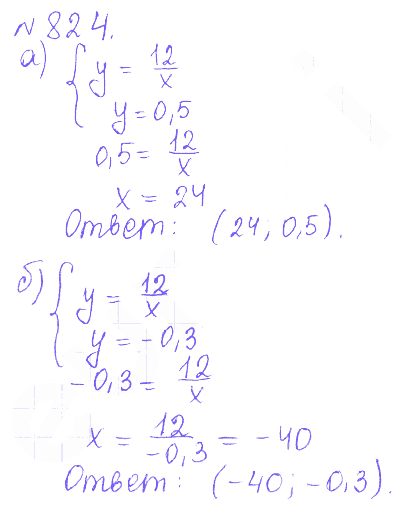 № 824.
а) { y = 12/x
y = 0,5
0,5 = 12/x
x = 24
Ответ: (24; 0,5).
б) { y = 12/x
y = -0,3
-0,3 = 12/x
x = 12/-0,3 = -40
Ответ: (-40; -0,3).